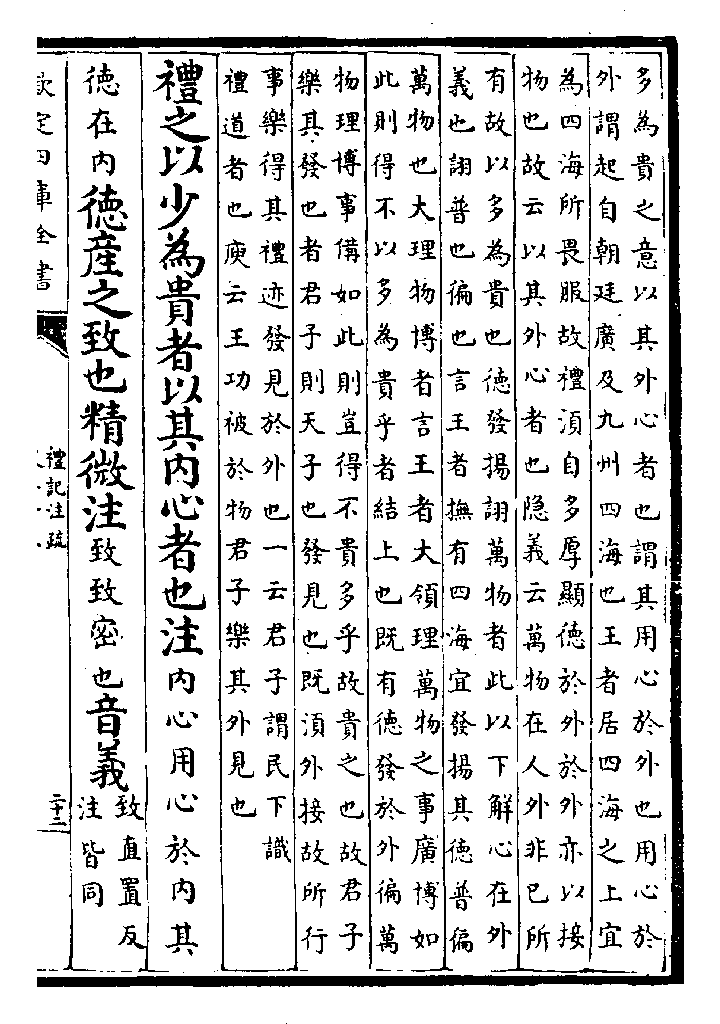 多為貴之意以其外心者也謂其用心於外也用心於
外謂起自朝廷廣及九州四海也王者居四海之上宜
為四海所畏服故禮湏自多厚顯徳於外於外亦以接
物也故云以其外心者也隐義云萬物在人外非已所
有故以多為貴也徳發揚詡萬物者此以下解心在外
義也詡普也徧也言王者撫有四海宜發揚其徳普徧
萬物也大理物博者言王者大領理萬物之事廣博如
此則得不以多為貴乎者結上也既有徳發於外徧萬
物理博事備如此則豈得不貴多乎故貴之也故君子
樂其發也者君子則天子也發見也既湏外接故所行
事樂得其禮迹發見於外也一云君子謂民下識
禮道者也庾云王功被於物君子樂其外見也
禮之以少為貴者以其内心者也注内心用心於内其
徳在内徳産之致也精微注致致密也音義致直置反
注皆同
欽定四庫全書
禮記注疏
二十二